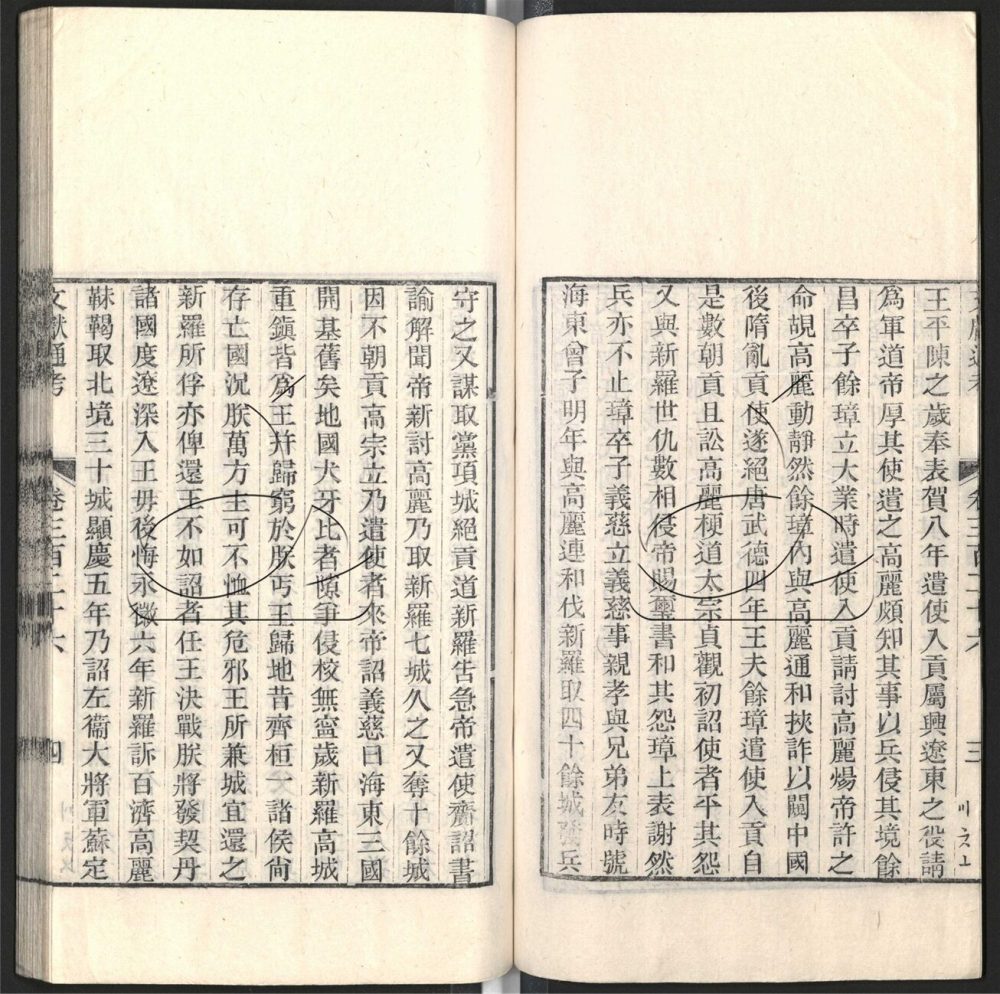 三
王平陳之歲奉表賀八年遣使入貢屬興遼東之役請
爲軍道帝厚其使遣之高麗頗知其事以兵侵其境餘
昌卒子餘璋立大業時遣使入貢請討高麗煬帝許之
命覘高麗動靜然餘璋內與高麗通和挾詐以闚中國
後隋亂貢使遂絕唐武德四年王夫餘璋遣使入貢自
是數朝貢且訟高麗梗道太宗貞觀初詔使者平其怨
又與新羅世仇數相侵帝賜璽書和其怨璋上表謝然
兵亦不止璋卒子義慈立義慈事親孝與兄弟友時號
海東曾子明年與高麗連和伐新羅取四十餘城發兵
守之又謀取黨項城絕貢道新羅告急帝遣使齎詔書
諭解聞帝新討高麗乃取新羅七城久之又奪十餘城
因不朝貢高宗立乃遣使者來帝詔義慈曰海東三國
開基舊矣地國犬牙比者隙爭侵校無寧歲新羅高城
重鎭皆爲王幷歸窮於朕丐王歸地昔齊桓一諸侯尙
存亡國況朕萬方主可不恤其危邪王所兼城宜還之
新羅所俘亦俾還王不如詔者任王決戰朕將發契丹
諸國度遼深入王毋後悔永徽六年新羅訴百濟高麗
靺鞨取北境三十城顯慶五年乃詔左衞大將軍蘇定
文獻通考 卷三百二十六 四